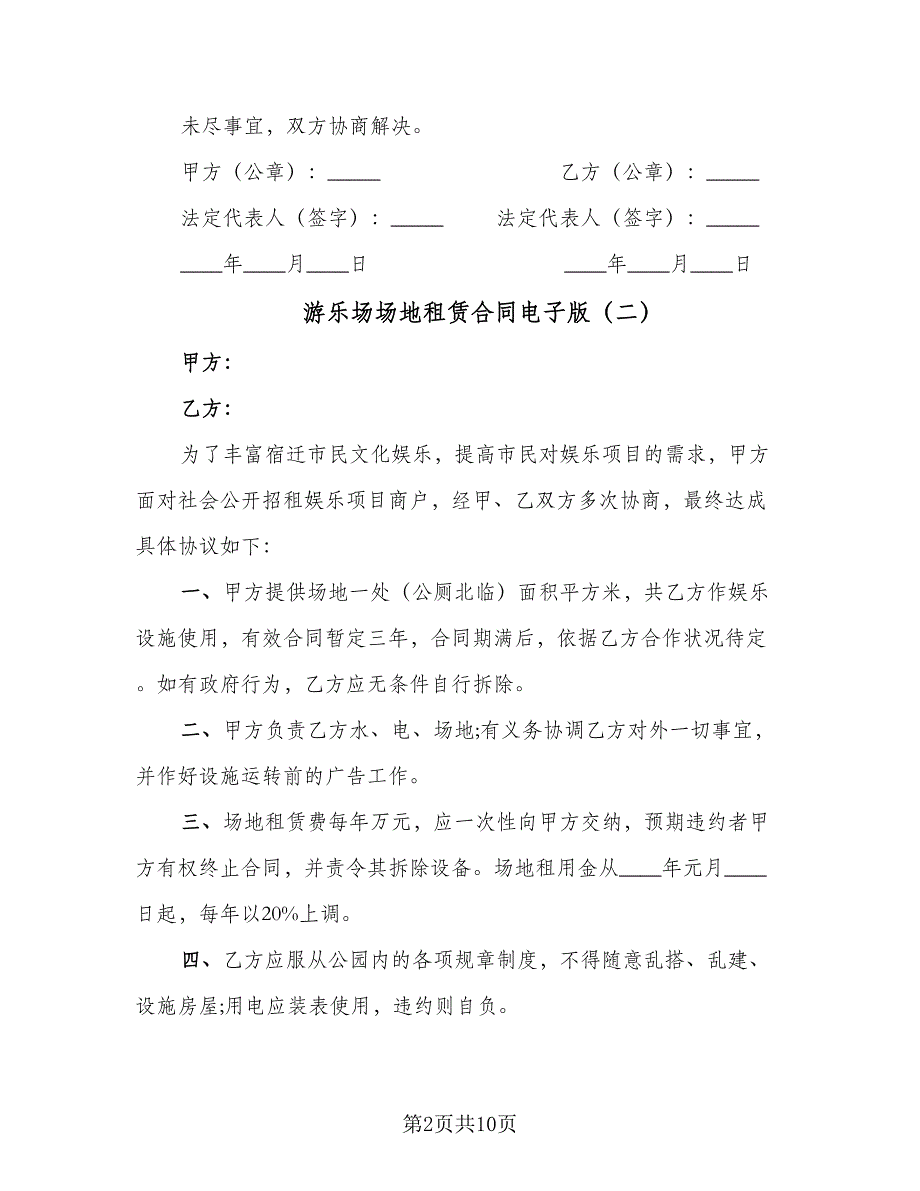 未尽事宜，双方协商解决。
甲方（公章）：_____ 乙方（公章）：_____
法定代表人（签字）：_____ 法定代表人（签字）：_____
____年____月____日 ____年____月____日
游乐场场地租赁合同电子版（二）
甲方：
乙方：
为了丰富宿迁市民文化娱乐，提高市民对娱乐项目的需求，甲方
面对社会公开招租娱乐项目商户，经甲、乙双方多次协商，最终达成
具体协议如下：
一、甲方提供场地一处（公厕北临）面积平方米，共乙方作娱乐
设施使用，有效合同暂定三年，合同期满后，依据乙方合作状况待定
。如有政府行为，乙方应无条件自行拆除。
二、甲方负责乙方水、电、场地;有义务协调乙方对外一切事宜，
并作好设施运转前的广告工作。
三、场地租赁费每年万元，应一次性向甲方交纳，预期违约者甲
方有权终止合同，并责令其拆除设备。场地租用金从____年元月____
日起，每年以20%上调。
四、乙方应服从公园内的各项规章制度，不得随意乱搭、乱建、
设施房屋;用电应装表使用，违约则自负。
第2页共10页